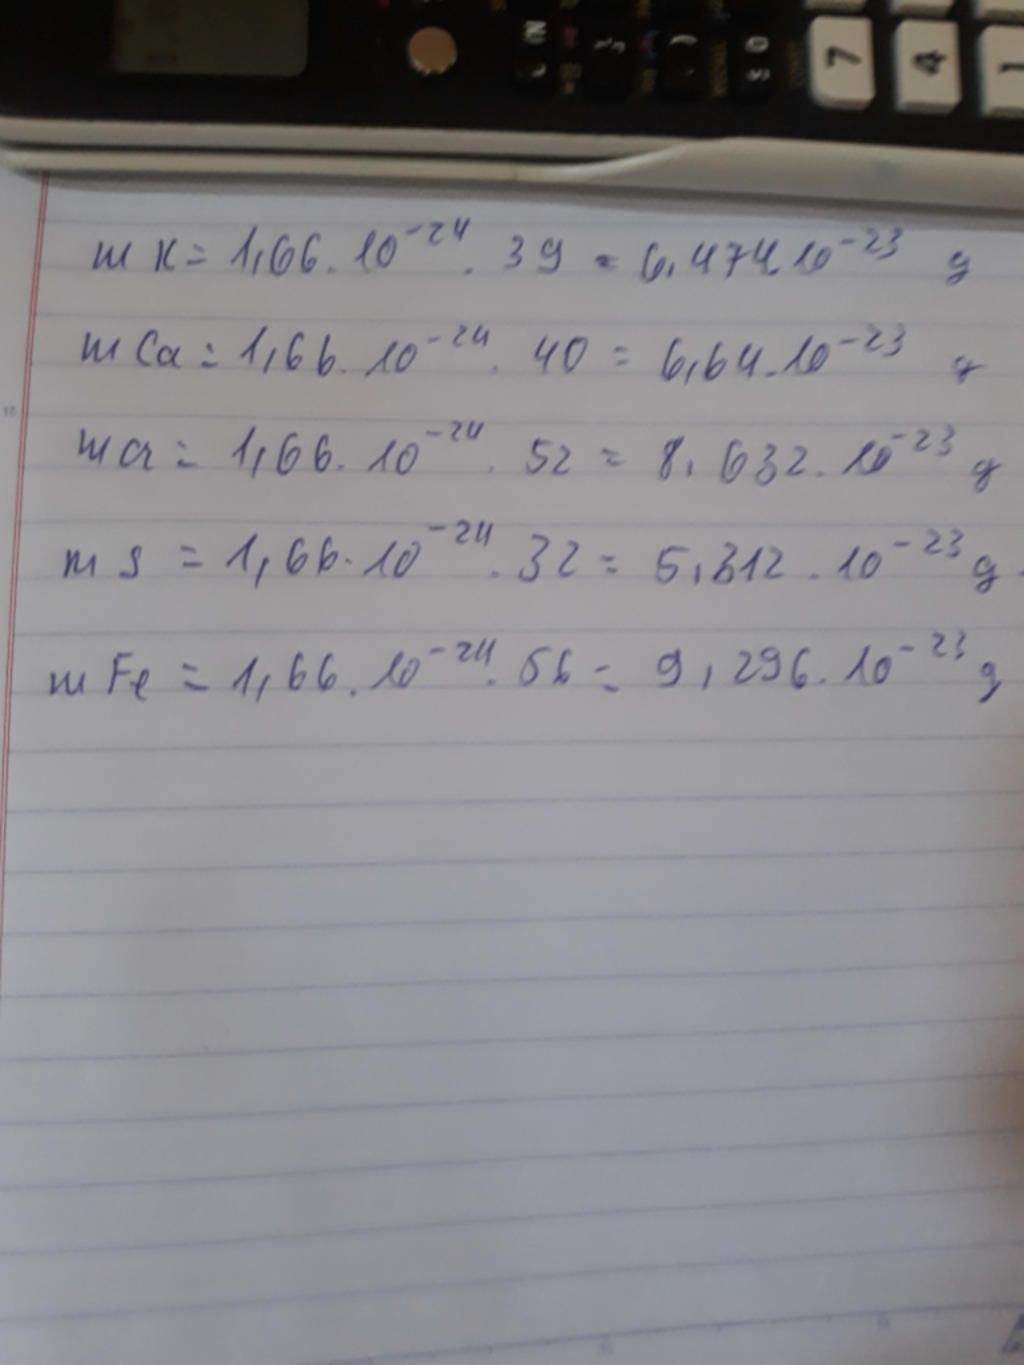 7 4 1
m K = 1,66. 10⁻²⁴ . 39 = 6,474.10⁻²³ g
m Ca = 1,66. 10⁻²⁴ . 40 = 6,64.10⁻²³ g
m Cr = 1,66. 10⁻²⁴ . 52 = 8,632. 10⁻²³ g
m S = 1,66. 10⁻²⁴ . 32 = 5,312 . 10⁻²³ g.
m Fe = 1,66. 10⁻²⁴ . 56 = 9,296. 10⁻²³ g